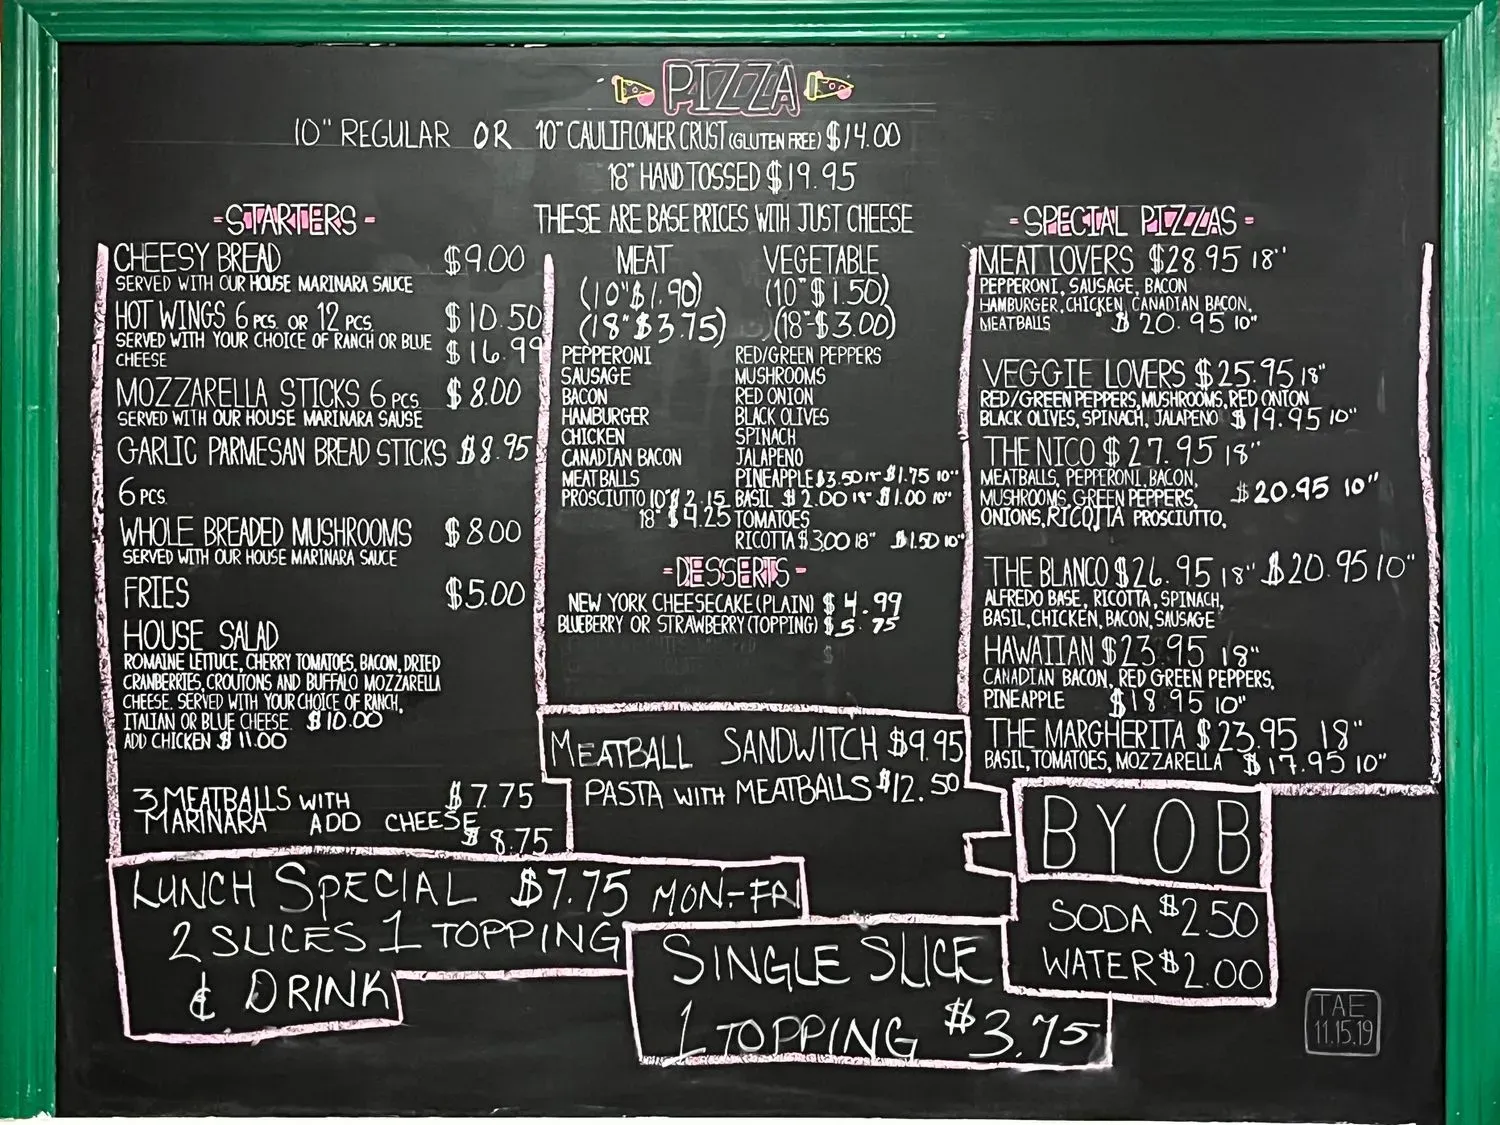 PIZZA
10" REGULAR OR 10" CAULIFLOWER CRUST (GLUTEN FREE) $14.00
18" HAND TOSSED $19.95
THESE ARE BASE PRICES WITH JUST CHEESE
-STARTERS-
CHEESY BREAD $9.00
SERVED WITH OUR HOUSE MARINARA SAUCE
HOT WINGS 6 PCS. OR 12 PCS. $10.50
SERVED WITH YOUR CHOICE OF RANCH OR BLUE $16.99
CHEESE
MOZZARELLA STICKS 6 PCS. $8.00
SERVED WITH OUR HOUSE MARINARA SAUSE
GARLIC PARMESAN BREAD STICKS $8.95
6 PCS.
WHOLE BREADED MUSHROOMS $8.00
SERVED WITH OUR HOUSE MARINARA SAUCE
FRIES $5.00
HOUSE SALAD
ROMAINE LETTUCE, CHERRY TOMATOES, BACON, DRIED
CRANBERRIES, CROUTONS AND BUFFALO MOZZARELLA
CHEESE. SERVED WITH YOUR CHOICE OF RANCH,
ITALIAN OR BLUE CHEESE. $10.00
ADD CHICKEN $11.00
3 MEATBALLS WITH $7.75
MARINARA ADD CHEESE
$8.75
MEAT VEGETABLE
(10" $1.90) (10" $1.50)
(18" $3.75) (18" $3.00)
PEPPERONI RED/GREEN PEPPERS
SAUSAGE MUSHROOMS
BACON RED ONION
HAMBURGER BLACK OLIVES
CHICKEN SPINACH
CANADIAN BACON JALAPENO
MEATBALLS PINEAPPLE $3.50 18" $1.75 10"
PROSCIUTTO 10" $2.15 BASIL $2.00 18" $1.00 10"
18" $4.25 TOMATOES
RICOTTA $3.00 18" $1.50 10"
-DESSERTS-
NEW YORK CHEESECAKE (PLAIN) $4.99
BLUEBERRY OR STRAWBERRY (TOPPING) $5.75
MEATBALL SANDWITCH $9.95
PASTA WITH MEATBALLS $12.50
-SPECIAL PIZZAS-
MEAT LOVERS $28.95 18"
PEPPERONI, SAUSAGE, BACON
HAMBURGER, CHICKEN, CANADIAN BACON,
MEATBALLS $20.95 10"
VEGGIE LOVERS $25.95 18"
RED/GREEN PEPPERS, MUSHROOMS, RED ONION
BLACK OLIVES, SPINACH, JALAPENO $19.95 10"
THE NICO $27.95 18"
MEATBALLS, PEPPERONI, BACON,
MUSHROOMS, GREEN PEPPERS, $20.95 10"
ONIONS, RICOTTA PROSCIUTTO,
THE BLANCO $26.95 18" $20.95 10"
ALFREDO BASE, RICOTTA, SPINACH,
BASIL, CHICKEN, BACON, SAUSAGE
HAWAIIAN $23.95 18"
CANADIAN BACON, RED GREEN PEPPERS,
PINEAPPLE $18.95 10"
THE MARGHERITA $23.95 18"
BASIL, TOMATOES, MOZZARELLA $17.95 10"
BYOB
SODA $2.50
WATER $2.00
LUNCH SPECIAL $7.75 MON-FRI
2 SLICES 1 TOPPING
& DRINK
SINGLE SLICE
1 TOPPING $3.75
TAE
11.15.19